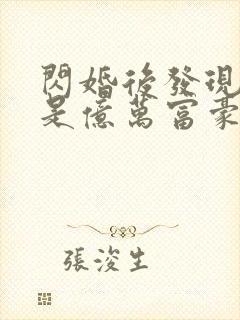 閃婚後發現
是億萬富豪
張浚生